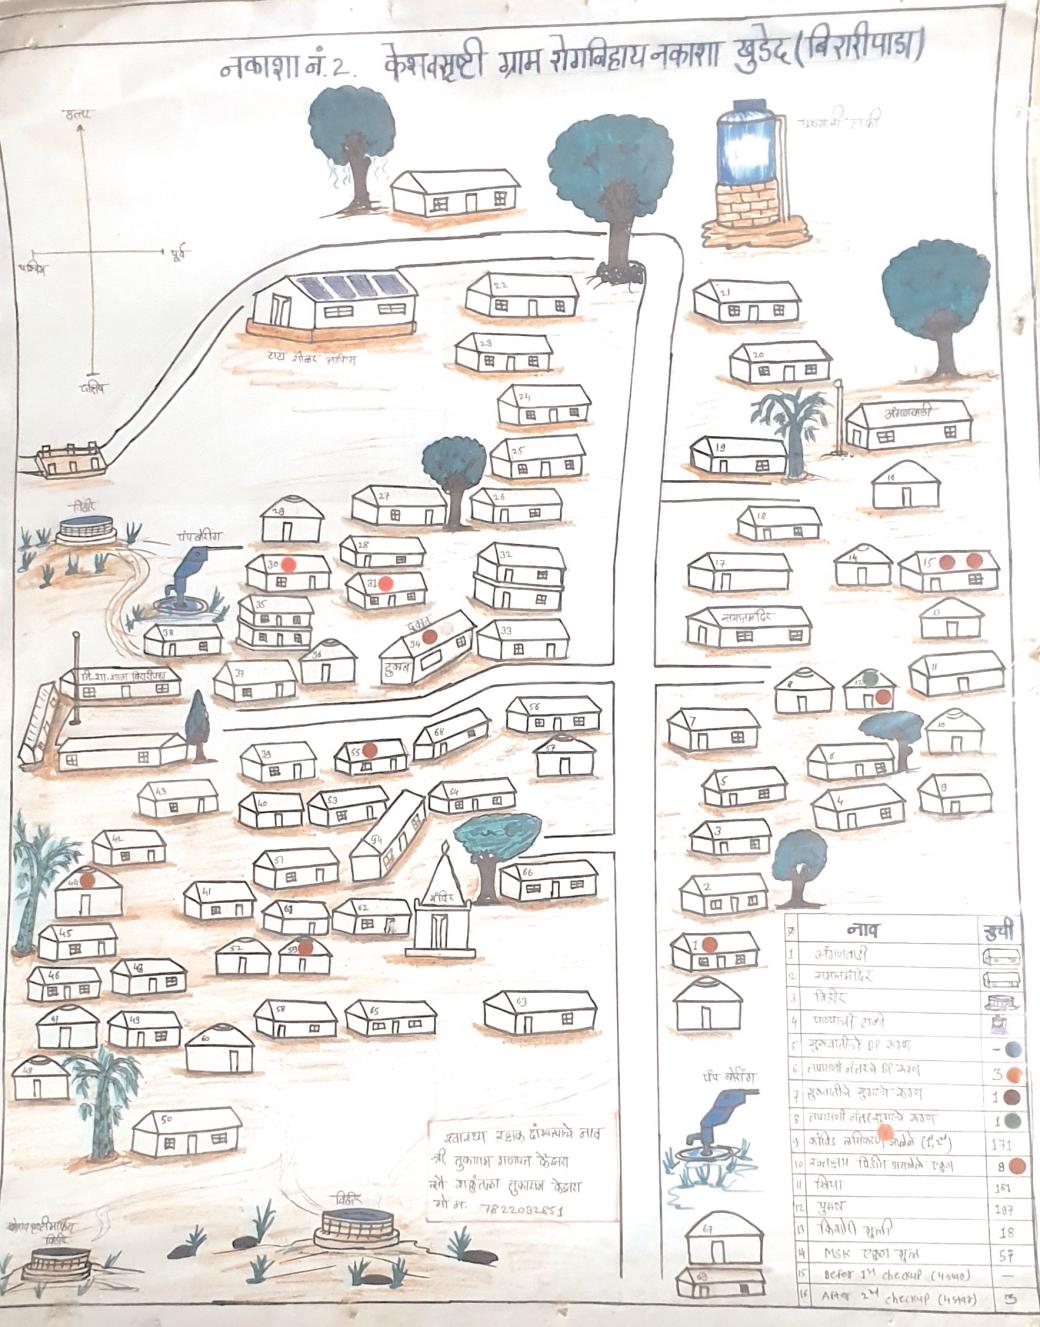 नकाशा नं. 2. केशवसृष्टी ग्राम रोगनिहाय नकाशा खुडेद (बिरारीपाडा)
उत्तर
पाण्याची टाकी
पूर्व
पश्चिम
22
21
23
20
24
अंगणवाडी
25
19
27
26
विहीर
29
18
पंपबोरींग
28
32
14
15
30
17
31
35
13
समाजमंदिर
दुकान
38
34
33
36
दुकान
11
37
8
12
56
7
10
68
39
55
57
6
5
43
40
53
64
4
9
54
3
42
51
44
2
41
66
61
62
मंदिर
45
52
59
1
46
58
65
63
47
49
60
48
50
पंप बोरींग
विहीर
विहीर
67
स्वास्थ्य रक्षक दांम्पत्याचे नाव
श्री तुकाराम गणपत केंडारा
सौ शकुंतला तुकाराम केंडारा
मो नं. 7822032651
क्र नाव सुची
1 अंगणवाडी
2 समाजमंदिर
3 विहीर
4 पाण्याची टाकी
5 सुरुवातीचे BP रुग्ण -
6 तपासणी नंतरचे BP रुग्ण 3
7 सुरुवातीचे शुगरचे रुग्ण 1
8 तपासणी नंतर शुगरचे रुग्ण 1
9 कोविड लसिकरण झालेले (1,2) 171
10 एकुण 8
11 स्त्रिया 161
12 पुरुष 197
13 किशोरी मुली 18
14 MSK एकुण मुल 57
15 Befor 1st checkup (4 नंबर) —
16 After 2nd checkup (4 नंबर) 3